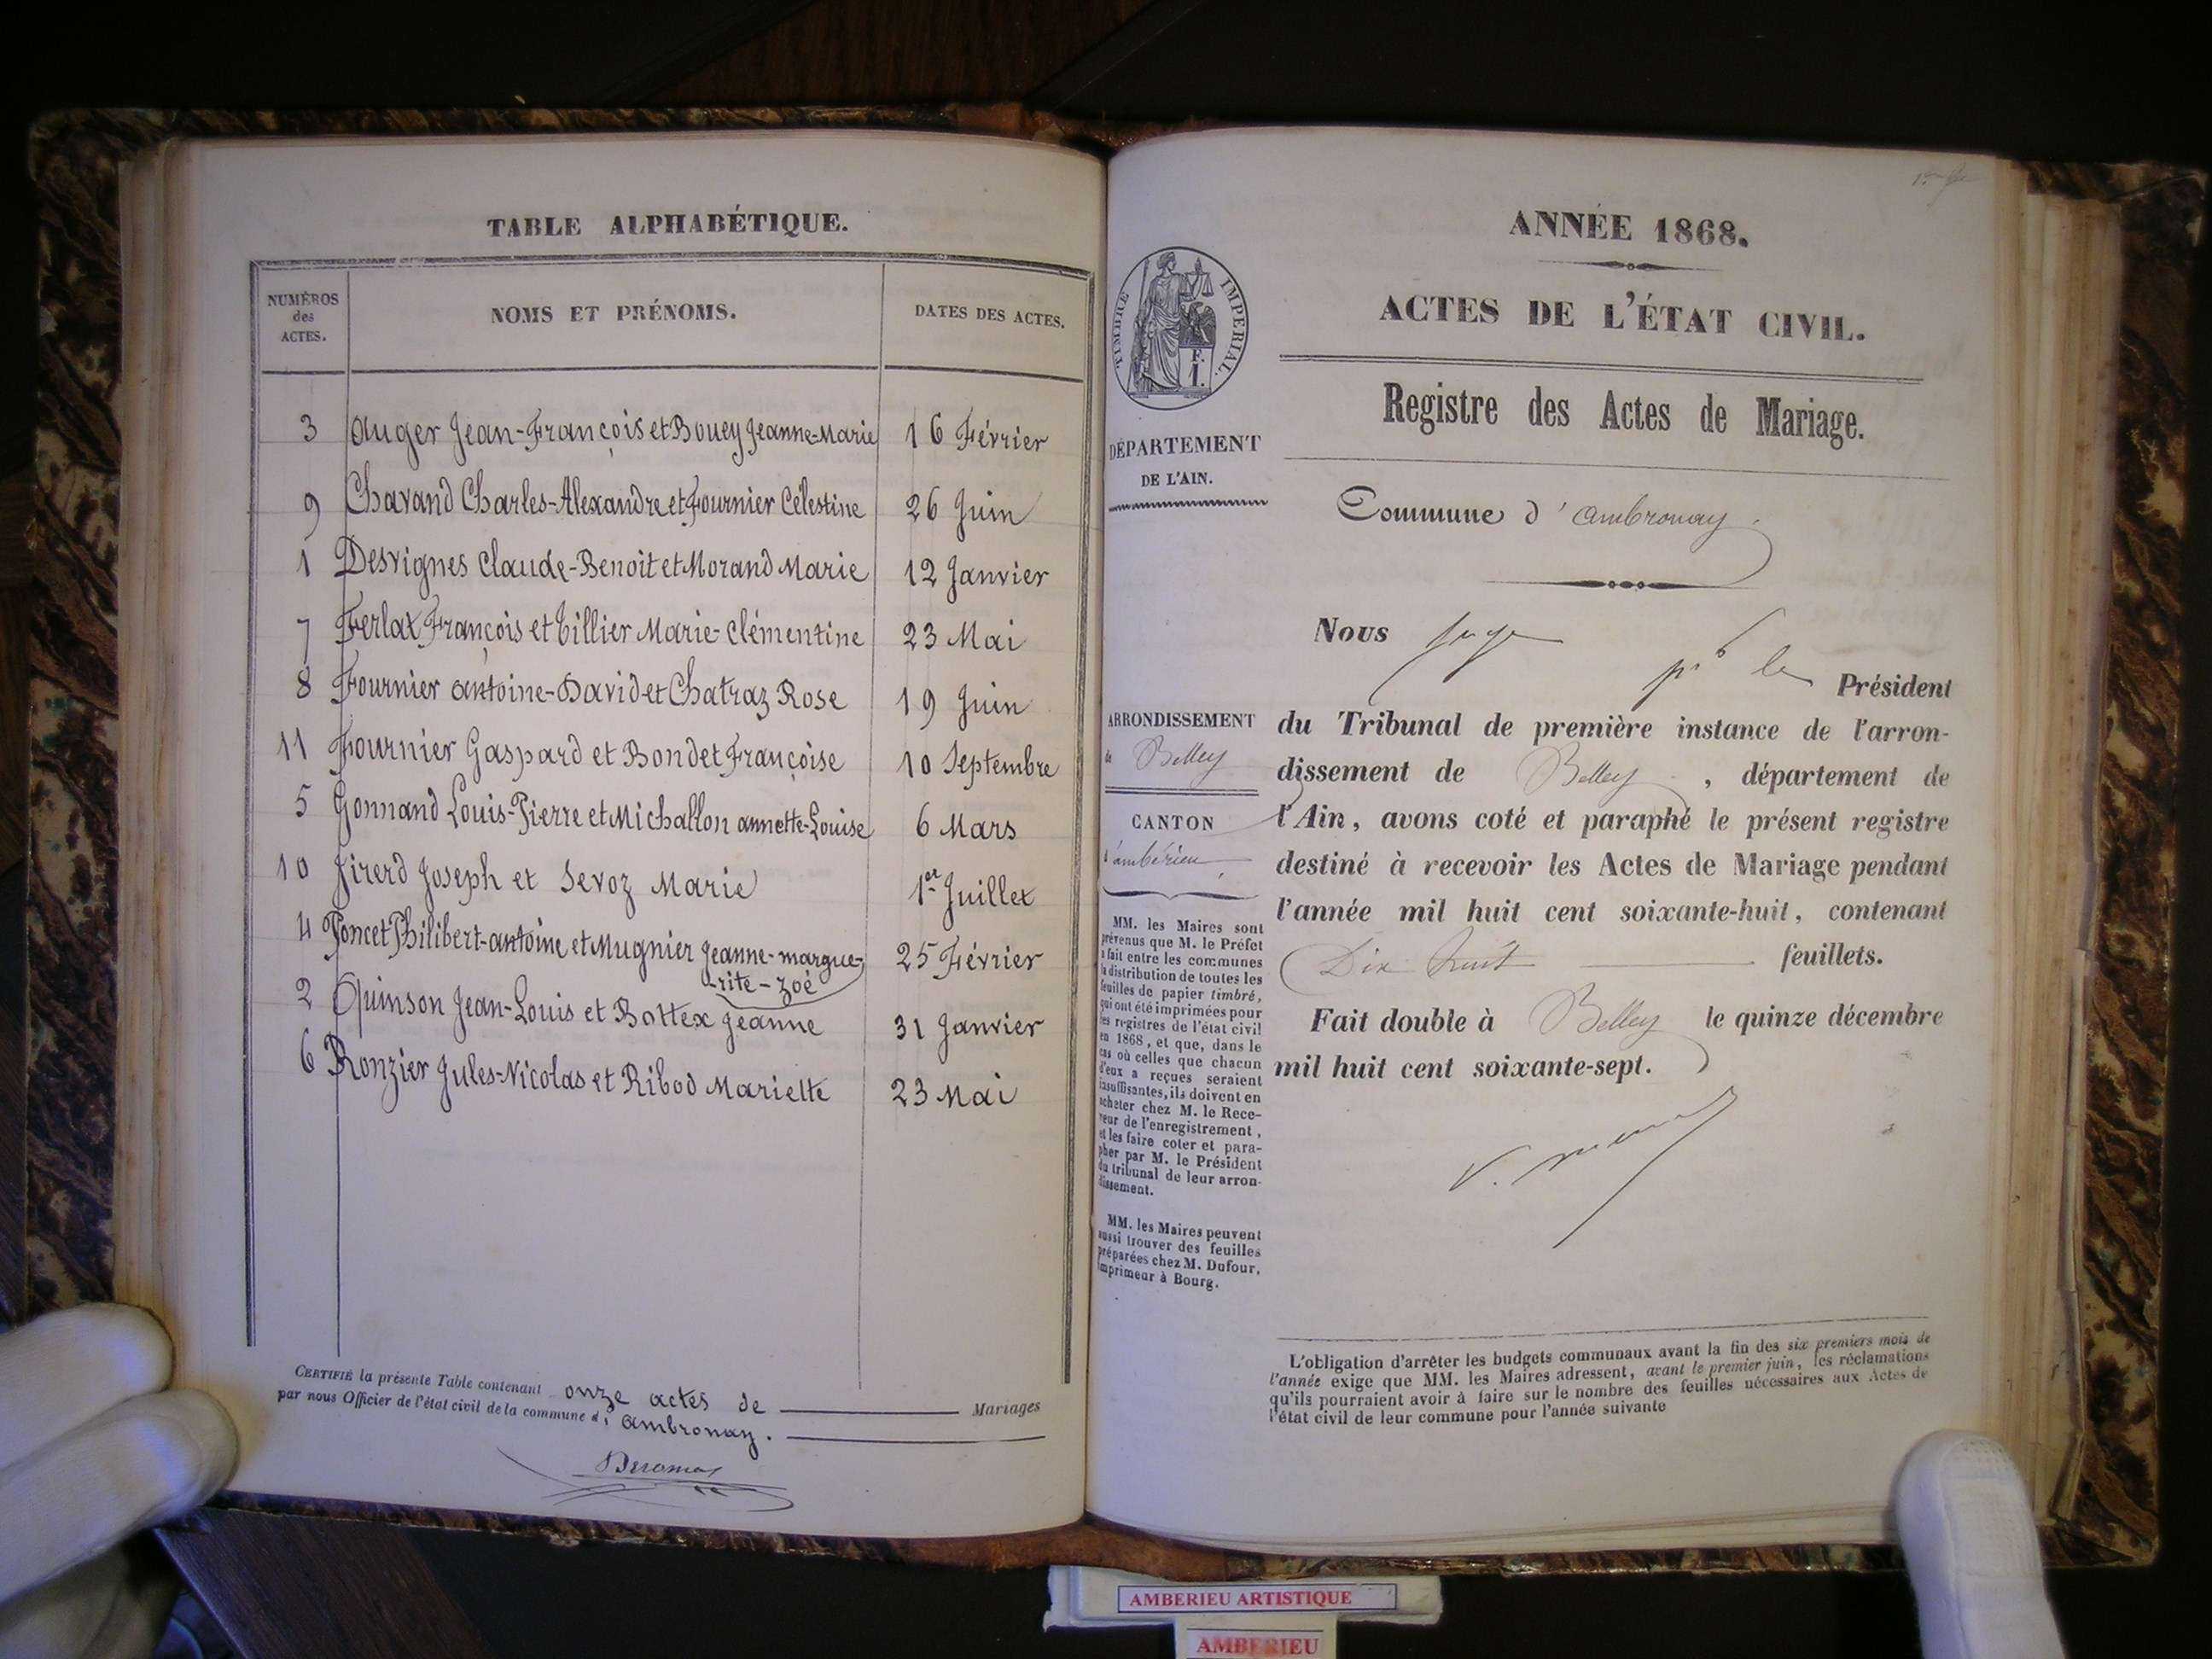 TABLE ALPHABÉTIQUE.
NUMÉROS
des
ACTES.
NOMS ET PRÉNOMS.
DATES DES ACTES.
3 Auger Jean-François et Bouey Jeanne-Marie 16 Février
9 Chavand Charles-Alexandre et Fournier Célestine 26 Juin
1 Desvignes Claude-Benoit et Morand Marie 12 Janvier
7 Ferlat François et Tillier Marie-Clémentine 23 Mai
8 Fournier antoine-David et Chatraz Rose 19 Juin
11 Fournier Gaspard et Bondet Françoise 10 Septembre
5 Gonnand Louis-Pierre et Michallon annette-Louise 6 Mars
10 Jirerd Joseph et Sevoz Marie 1er Juillet
4 Poncet Philibert-antoine et Mugnier Jeanne-margue- 25 Février
-rite-Zoé
2 Quinson Jean-Louis et Bottex Jeanne 31 Janvier
6 Ronzier Jules-Nicolas et Ribod Mariette 23 Mai
CERTIFIÉ la présente Table contenant onze actes de Mariages
par nous Officier de l'état civil de la commune d' ambronay.
ANNÉE 1868.
ACTES DE L'ÉTAT CIVIL.
Registre des Actes de Mariage.
TIMBRE IMPÉRIAL.
F.
I.
DÉPARTEMENT
DE L'AIN.
Commune d'ambronay.
ARRONDISSEMENT
de Belley
CANTON
d'ambérieu
MM. les Maires sont
prévenus que M. le Préfet
a fait entre les communes
la distribution de toutes les
feuilles de papier timbré,
qui ont été imprimées pour
les registres de l'état civil
en 1868, et que, dans le
cas où celles que chacun
d'eux a reçues seraient
insuffisantes, ils doivent en
acheter chez M. le Rece-
veur de l'enregistrement,
et les faire coter et para-
pher par M. le Président
du tribunal de leur arron-
dissement.
MM. les Maires peuvent
aussi trouver des feuilles
préparées chez M. Dufour,
imprimeur à Bourg.
Nous juge pr le Président
du Tribunal de première instance de l'arron-
dissement de Belley, département de
l'Ain, avons coté et paraphé le présent registre
destiné à recevoir les Actes de Mariage pendant
l'année mil huit cent soixante-huit, contenant
Dix huit feuillets.
Fait double à Belley le quinze décembre
mil huit cent soixante-sept.
L'obligation d'arrêter les budgets communaux avant la fin des six premiers mois de
l'année exige que MM. les Maires adressent, avant le premier juin, les réclamations
qu'ils pourraient avoir à faire sur le nombre des feuilles nécessaires aux Actes de
l'état civil de leur commune pour l'année suivante
AMBERIEU ARTISTIQUE
AMBERIEU